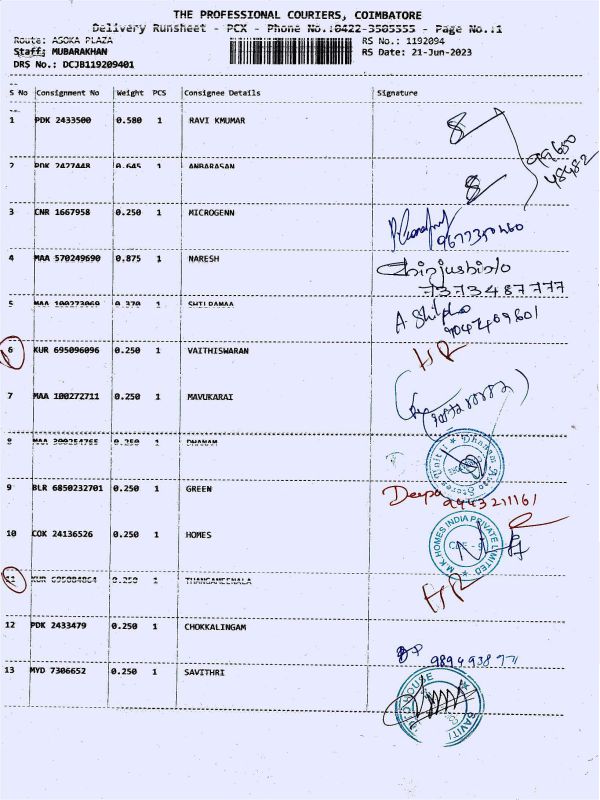 THE PROFESSIONAL COURIERS, COIMBATORE
Delivery Runsheet - PCX - Phone No.:0422-3505555 - Page No.:1
Route: ASOKA PLAZA RS No.: 1192094
Staff: MUBARAKHAN RS Date: 21-Jun-2023
DRS No.: DCJB119209401
S No Consignment No Weight PCS Consignee Details Signature
1 PDK 2433500 0.580 1 RAVI KMUMAR
99650
48482
2 PDK 2427448 0.645 1 ANBARASAN
3 CNR 1667958 0.250 1 MICROGENN
4 MAA 570249690 0.875 1 NARESH
7373487777
5 MAA 100273069 0.370 1
A Shilpha
6 KUR 695096096 0.250 1 VAITHISWARAN
HR
7 MAA 100272711 0.250 1 MAVUKARAI
8 MAA 200254765 0.250 1 DHANAM
9 BLR 6850232701 0.250 1 GREEN Deepa
2443211161
10 COK 24136526 0.250 1 HOMES
M K HOMES INDIA PRIVATE LIMITED
11 KUR 695084864 0.250 1 THANGAMEENALA
HR
12 PDK 2433479 0.250 1 CHOKKALINGAM
13 MYD 7306652 0.250 1 SAVITHRI